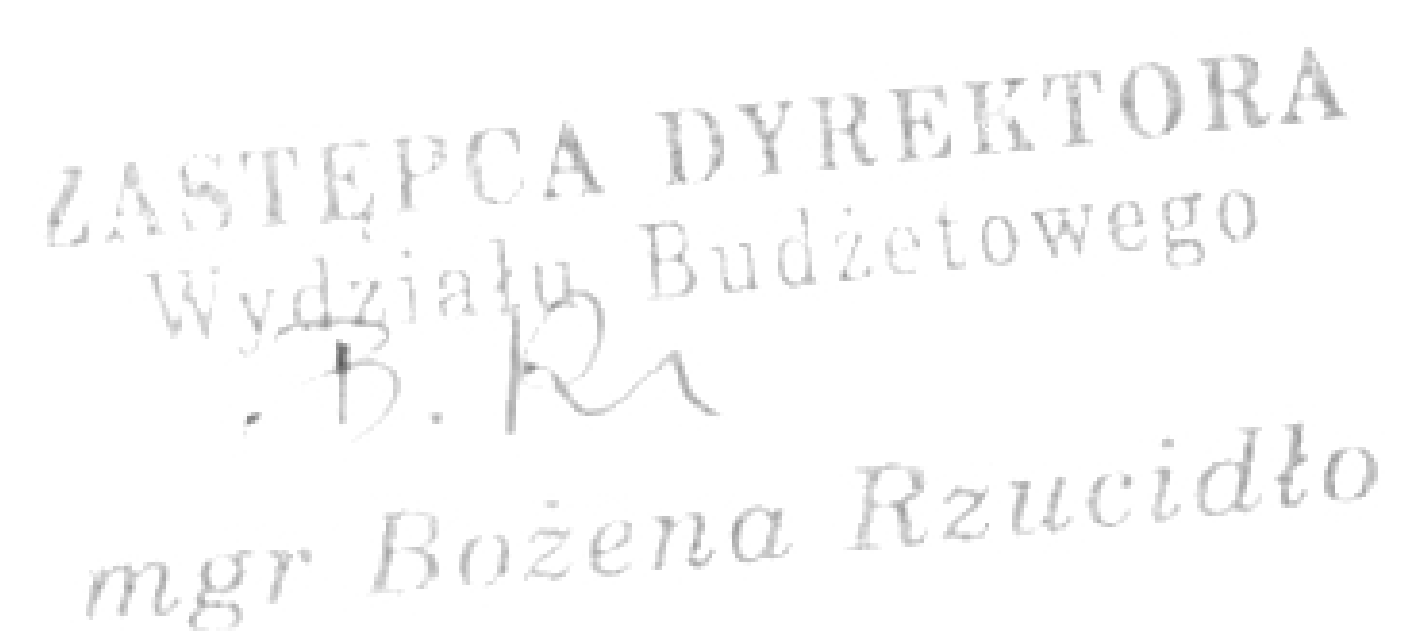 ZASTĘPCA DYREKTORA
Wydziału Budżetowego
B. R
mgr Bożena Rzucidło